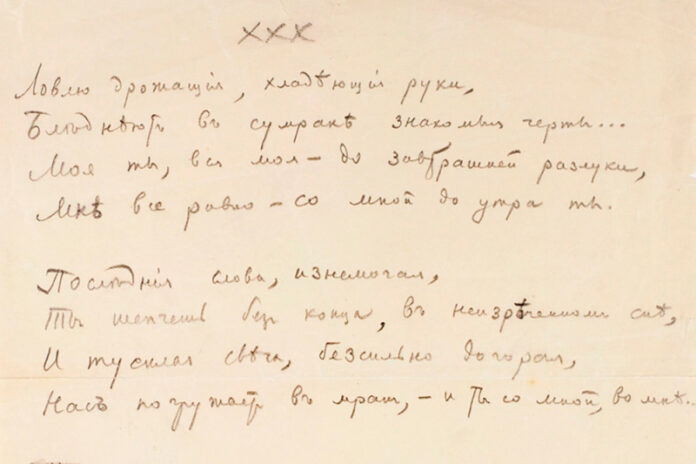 XXX
Ловлю дрожащія, хладѣющія руки,
Блѣднѣютъ въ сумракѣ знакомыя черты...
Моя ты, вся моя – до завтрашней разлуки,
Мнѣ все равно – со мной до утра ты.
Послѣднія слова, изнемогая,
Ты шепчешь безъ конца, въ неизрѣченномъ снѣ,
И тусклая свѣча, безсильно догорая,
Насъ погружаетъ въ мракъ, – и ты со мной, во мнѣ...